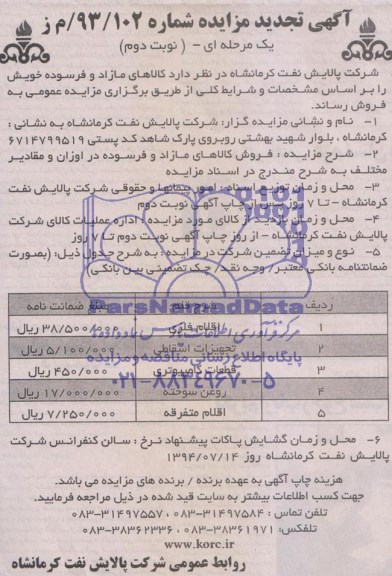 آگهی تجدید مزایده شماره ۹۳/۱۰۲/م ز
یک مرحله ای - ( نوبت دوم)
شرکت پالایش نفت کرمانشاه در نظر دارد کالاهای مازاد و فرسوده خویش
را بر اساس مشخصات و شرایط کلی از طریق برگزاری مزایده عمومی به
فروش رساند.
۱- نام و نشانی مزایده گزار: شرکت پالایش نفت کرمانشاه به نشانی :
کرمانشاه ، بلوار شهید بهشتی روبروی پارک شاهد کد پستی ۶۷۱۴۷۹۹۵۱۹
۲- شرح مزایده : فروش کالاهای مازاد و فرسوده در اوزان و مقادیر
مختلف به شرح مندرج در اسناد مزایده
۳- محل و زمان توزیع اسناد : امور پیمانها و حقوقی شرکت پالایش نفت
کرمانشاه - تا ۷ روز پس از چاپ آگهی نوبت دوم
۴- محل و زمان بازدید از کالای مورد مزایده : اداره عملیات کالای شرکت
پالایش نفت کرمانشاه - از روز چاپ آگهی نوبت دوم تا ۷ روز
۵- نوع و میزان تضمین شرکت در مزایده : به شرح جدول ذیل: (بصورت
ضمانتنامه بانکی معتبر/ وجه نقد/ چک تضمینی بین بانکی)
ردیف شرح قلم مبلغ ضمانت نامه
۱ اقلام فلزی ۳۸/۵۰۰/۰۰۰ ریال
۲ تجهیزات اسقاطی ۵/۱۰۰/۰۰۰ ریال
۳ قطعات کامپیوتری ۴۵۰/۰۰۰ ریال
۴ روغن سوخته ۱۷/۰۰۰/۰۰۰ ریال
۵ اقلام متفرقه ۷/۲۵۰/۰۰۰ ریال
ParsNamadData
پایگاه اطلاع رسانی مناقصه و مزایده
۰۲۱-۸۸۳۴۹۶۷۰-۵
۶- محل و زمان گشایش پاکات پیشنهاد نرخ : سالن کنفرانس شرکت
پالایش نفت کرمانشاه روز ۱۳۹۴/۰۷/۱۴
هزینه چاپ آگهی به عهده برنده / برنده های مزایده می باشد.
جهت کسب اطلاعات بیشتر به سایت قید شده در ذیل مراجعه فرمایید.
تلفن تماس : ۳۱۴۹۷۵۸۴-۰۸۳ ، ۳۱۴۹۷۵۵۷-۰۸۳
تلفکس: ۳۸۳۶۱۹۷۱-۰۸۳ ، ۳۸۳۶۲۳۳۶-۰۸۳
www.korc.ir
روابط عمومی شرکت پالایش نفت کرمانشاه